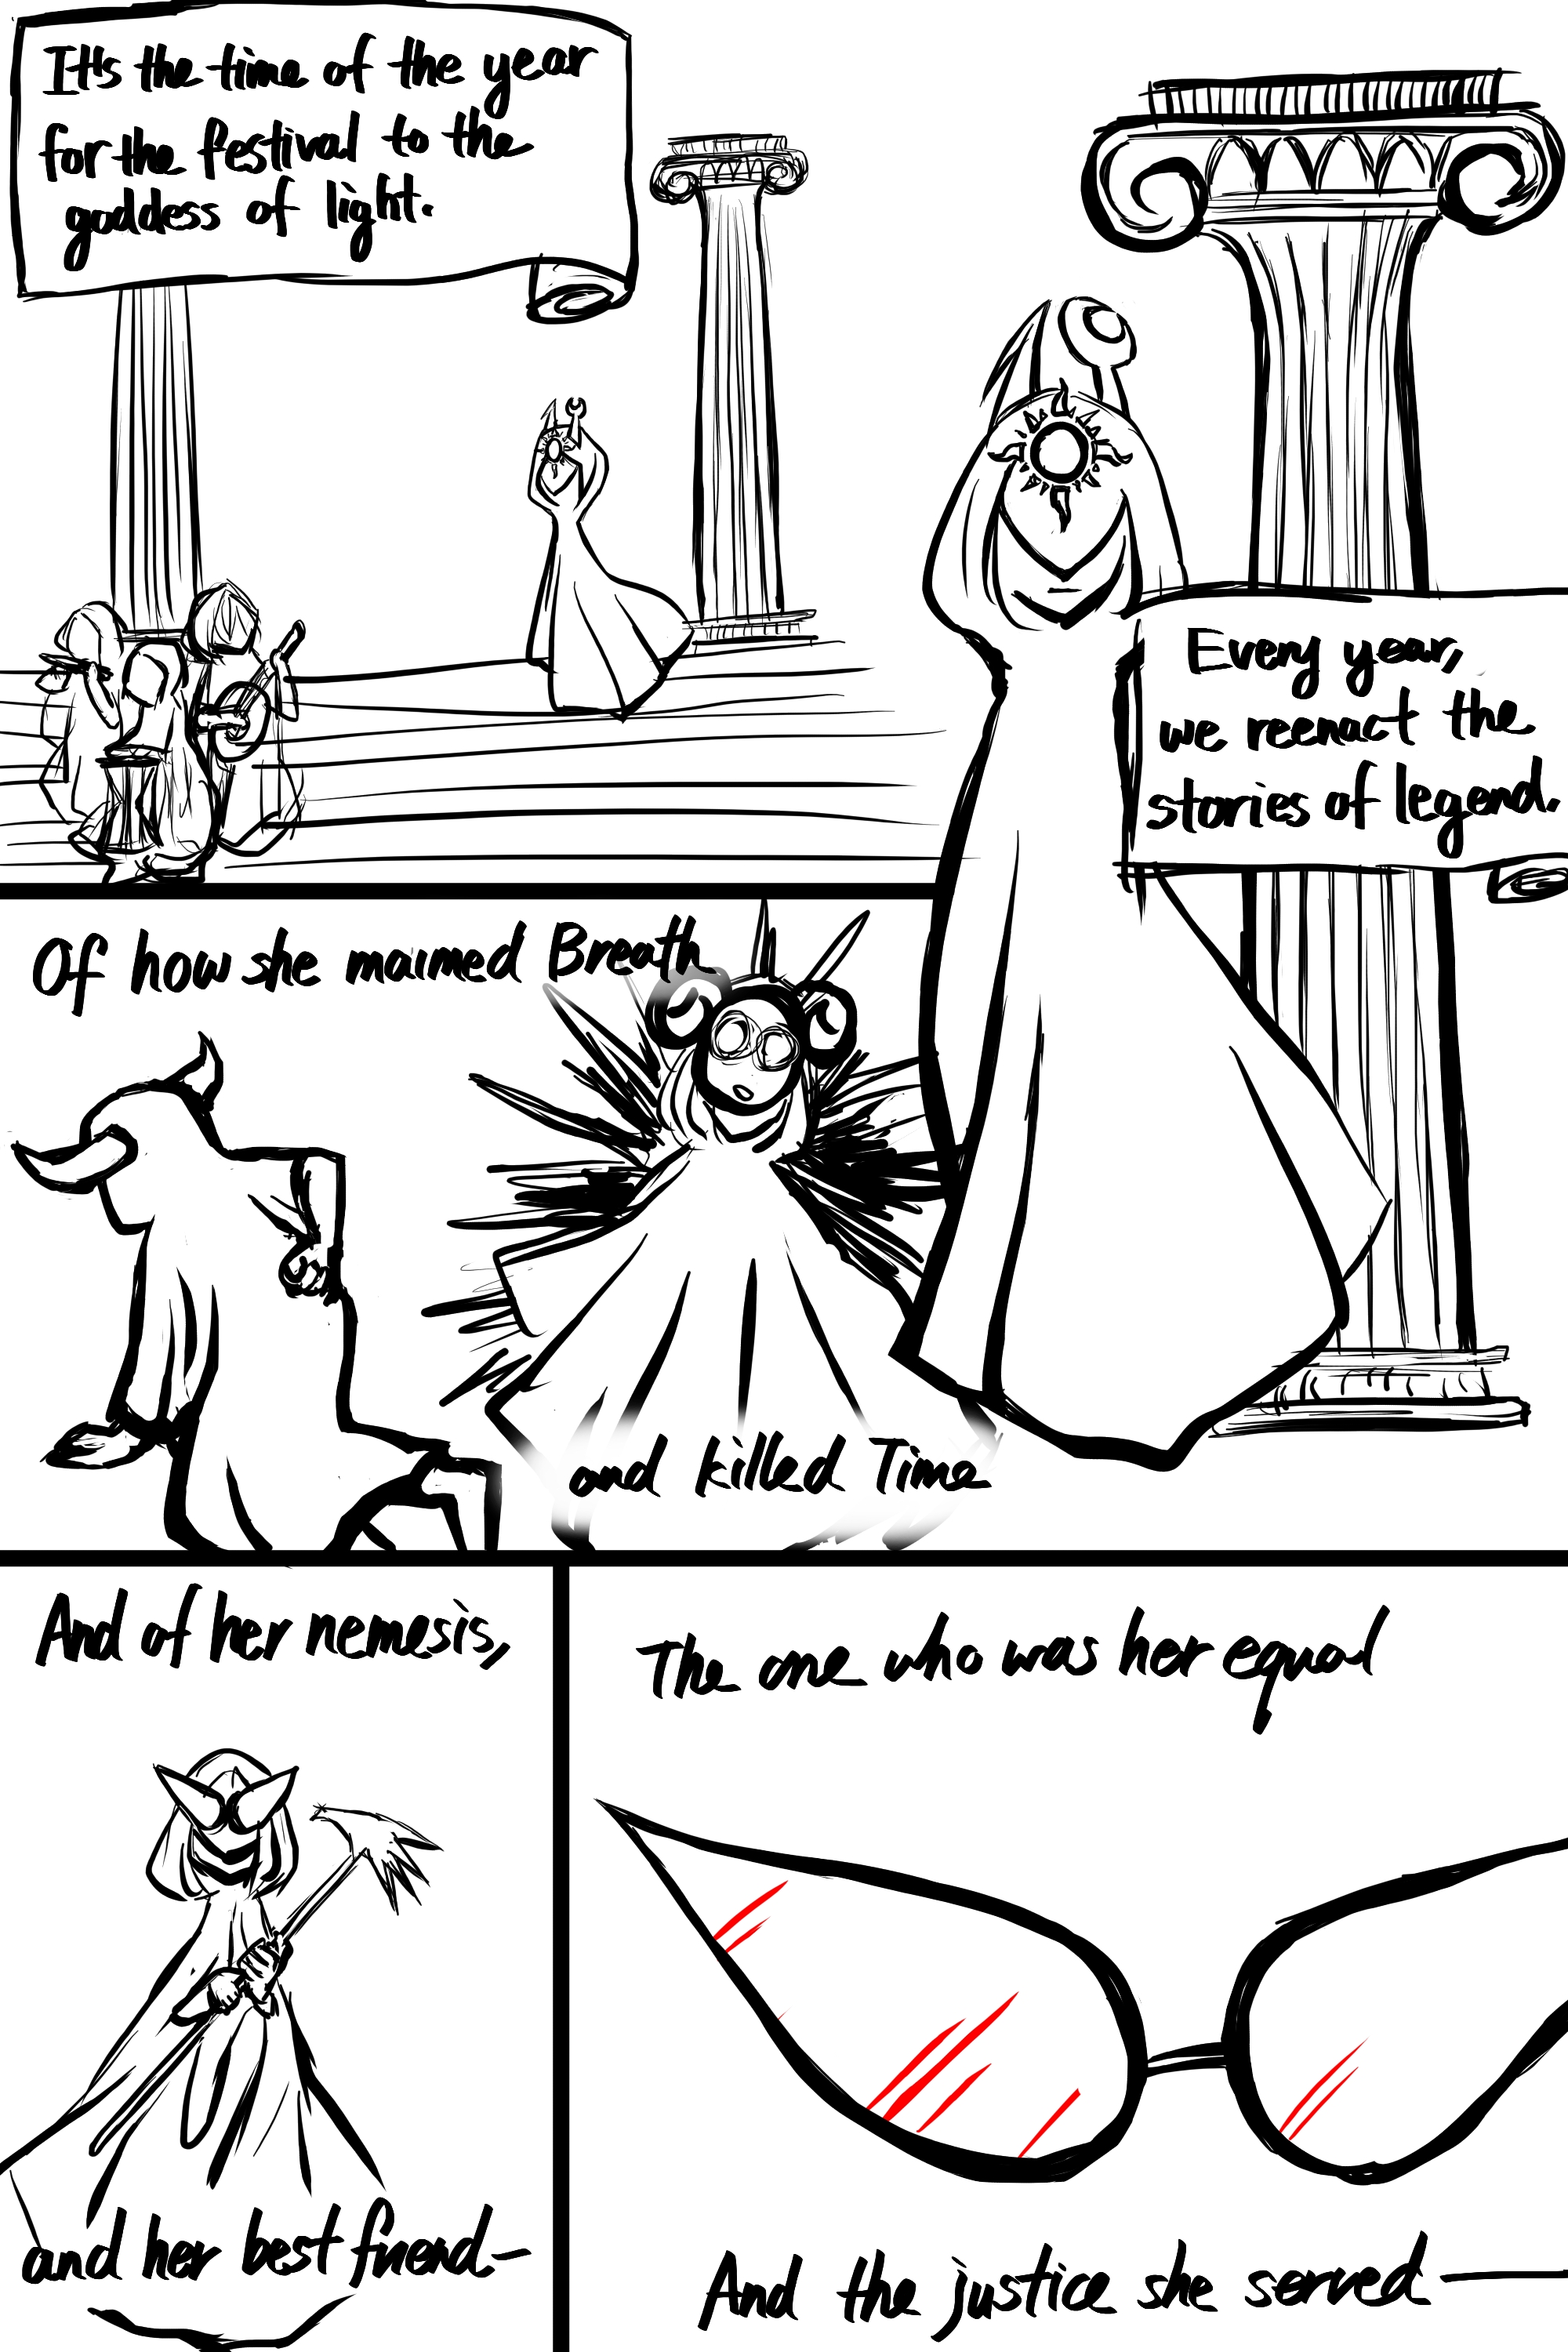 It's the time of the year
for the festival to the
goddess of light.
Every year,
we reenact the
stories of legend.
Of how she maimed Breath
and killed Time
And of her nemesis,
and her best friend—
The one who was her equal
And the justice she served—